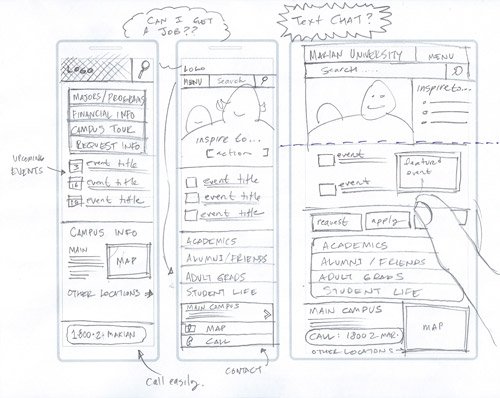 CAN I GET
A JOB??
TEXT CHAT?
LOGO
MAJORS/PROGRAMS
FINANCIAL INFO
CAMPUS TOUR
REQUEST INFO
UPCOMING
EVENTS
event title
event title
event title
CAMPUS INFO
MAIN
MAP
OTHER LOCATIONS
1800·2·MARIAN
Call easily.
LOGO
MENU
Search
inspire to...
[action]
event title
event title
event title
ACADEMICS
ALUMNI/FRIENDS
ADULT GRADS
STUDENT LIFE
MAIN CAMPUS
MAP
CALL
CONTACT
MARIAN UNIVERSITY
MENU
Search...
inspire to...
event
event
featured
event
request
apply
ACADEMICS
ALUMNI / FRIENDS
ADULT GRADS
STUDENT LIFE
MAIN CAMPUS
CALL: 1800 2·MAR
OTHER LOCATIONS
MAP